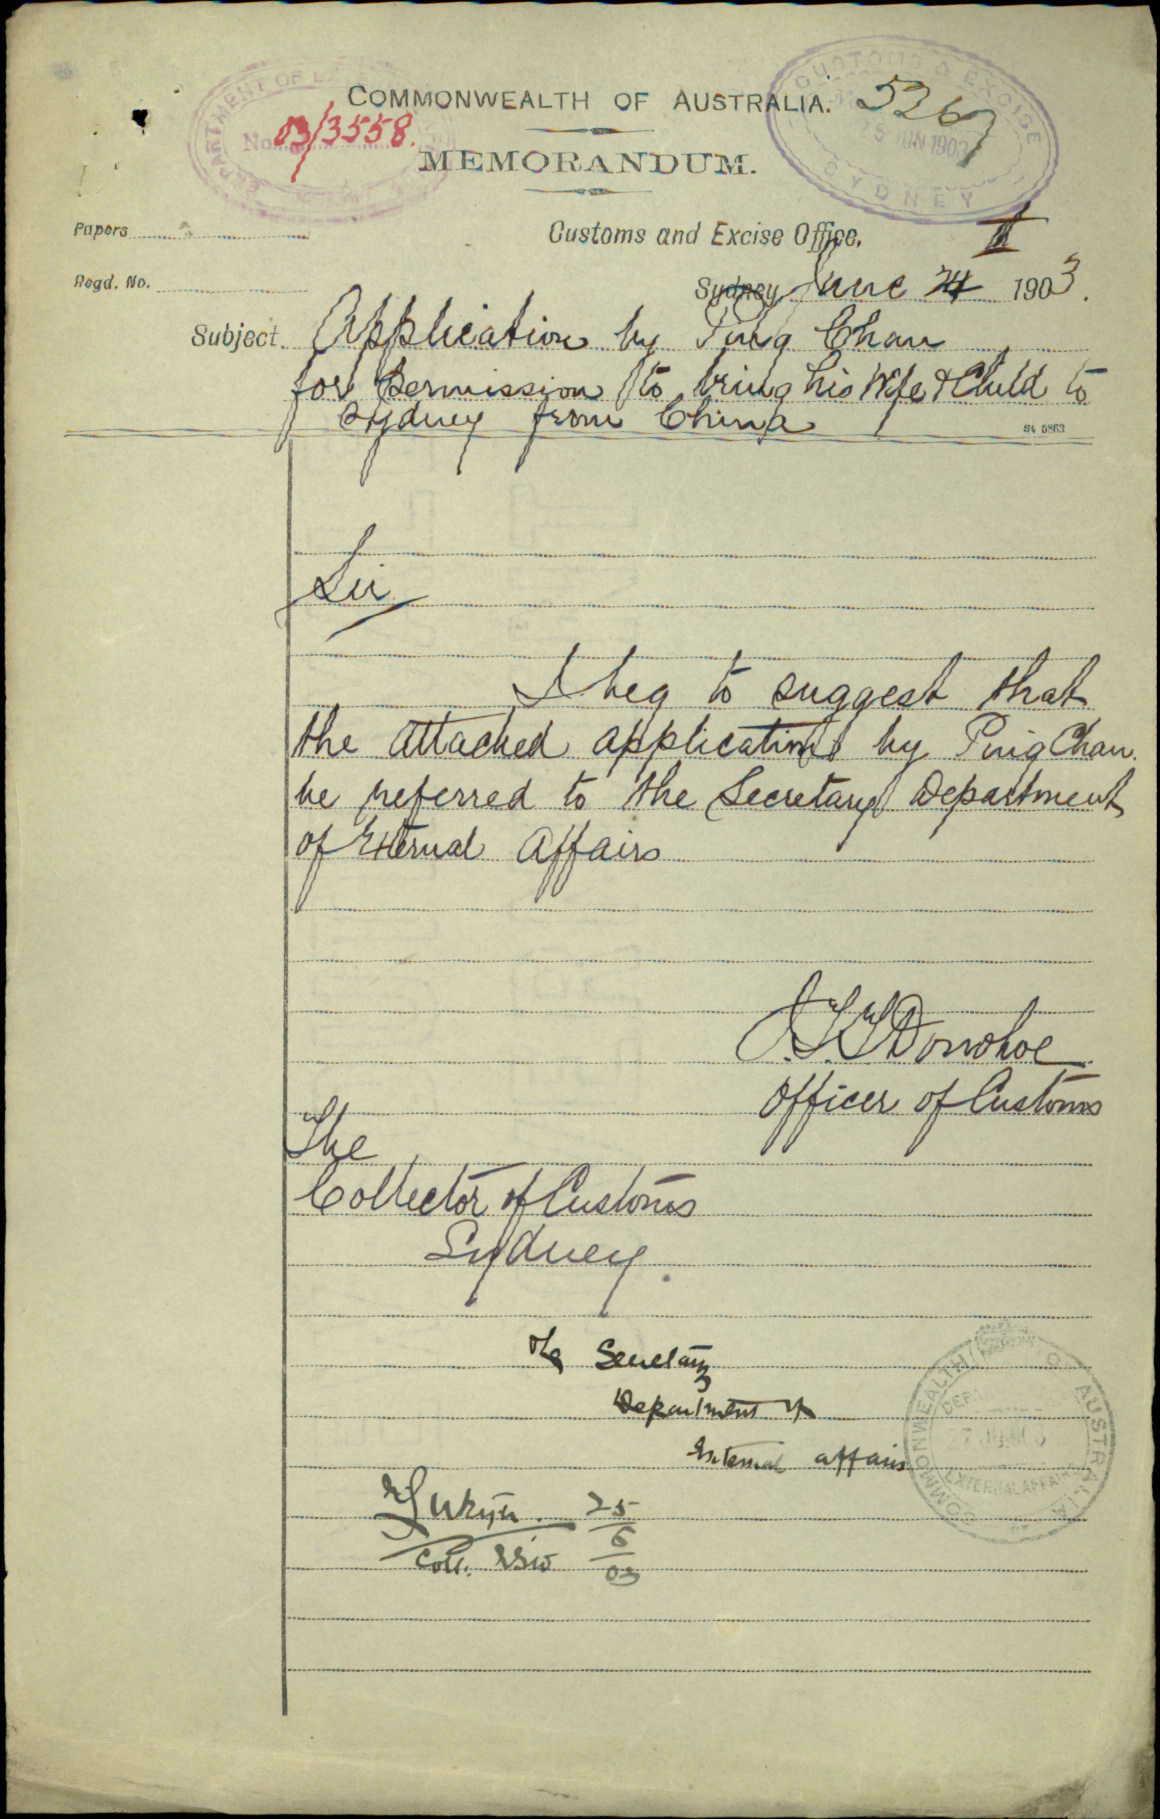 COMMONWEALTH OF AUSTRALIA.
5267
No. 03/3558.
CUSTOMS & EXCISE
25 JUN 1903
SYDNEY
MEMORANDUM.
Papers
Customs and Excise Office,
Regd. No.
Sydney June 24 1903.
Subject. Application by Ping Chan
for permission to bring his Wife & Child to
Sydney from China
St 5863
Sir
I beg to suggest that
the attached application by Ping Chan
be referred to the Secretary Department
of External Affairs
J.T.T. Donohoe
Officer of Customs
The
Collector of Customs
Sydney.
The Secretary
Department of
External affairs
COMMONWEALTH OF AUSTRALIA
27 JUN 03
EXTERNAL AFFAIRS
Coll. NSW
25
6
03